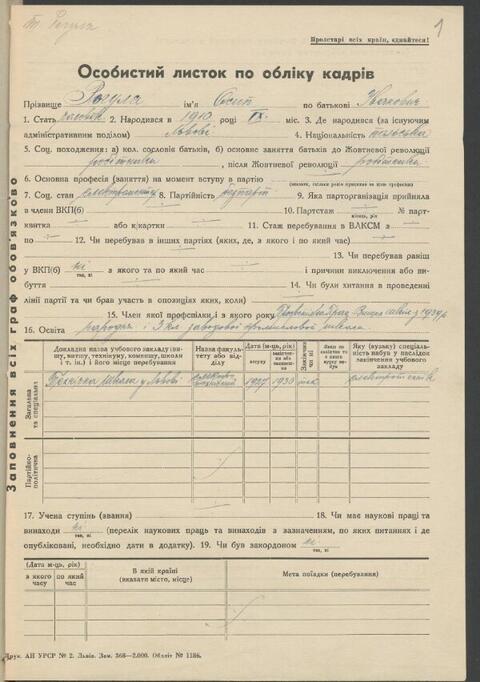 1
Пролетарі всіх країн, єднайтеся!
Особистий листок по обліку кадрів
Прізвище Рогуля ім'я Осип по батькові
1. Стать 2. Народився в 1910 році IX міс. 3. Де народився (за існуючим
адміністративним поділом) Львові 4. Національність польська
5. Соц. походження: а) кол. сословія батьків, б) основне заняття батьків до Жовтневої революції
робітника, після Жовтневої революції робітника
6. Основна професія (заняття) на момент вступу в партію
7. Соц. стан 8. Партійність 9. Яка парторганізація прийняла
в члени ВКП(б) 10. Партстаж № парт-
місяць, рік
квитка або к/картки 11. Стаж перебування в ВЛКСМ з
по 12. Чи перебував в інших партіях (яких, де, з якого і по який час)
13. Чи перебував раніш
у ВКП(б) ні з якого та по який час і причини виключення або ви-
так, ні
буття 14. Чи були хитання в проведенні
лінії партії та чи брав участь в опозиціях яких, коли)
15. Член якої профспілки і з якого року
16. Освіта
Докладна назва учбового закладу (ви-
шу, витшу, технікуму, комвишу, школи
і т. ін.) і його місце перебування
Назва факуль-
тету або від-
ділу
Дата (м-ць, рік)
вступу
Закінчив
чи ні
Яку (вузьку) спеціаль-
ність набув у наслідок
закінчення учбового
закладу
Загальна
та спеціальна
Технічна школа у Львові
1927
1930
так
Партійно-
політична
17. Учена ступінь (звання) 18. Чи має наукові праці та
винаходи ні (перелік наукових праць та винаходів з зазначенням, по яких питаннях і де
так, ні
опубліковані, необхідно дати в додатку). 19. Чи був закордоном ні
так, ні
Дата (м-ць, рік)
з якого
часу
по який
час
В якій країні
(вказати місто, місце)
Мета поїздки (перебування)
Заповнення всіх граф обов'язково
Друк. АН УРСР № 2. Львів. Зам. 368—2.000. Обліт № 1186.